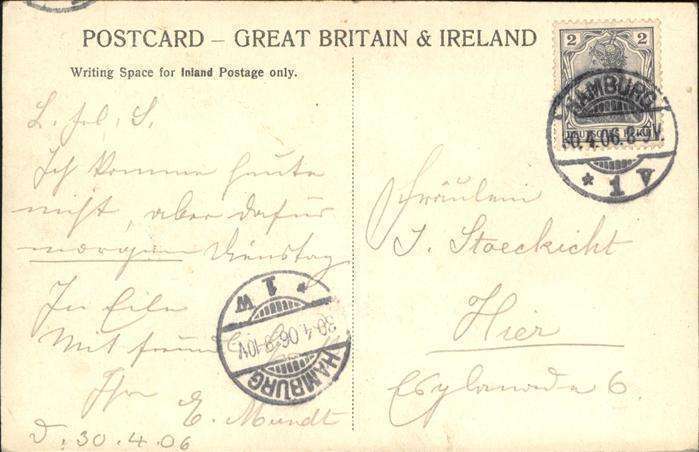 POSTCARD – GREAT BRITAIN & IRELAND
Writing Space for Inland Postage only.
2 2
DEUTSCHES REICH
HAMBURG
30.4.06.8-9V.
* 1 V
L. frl. S.
Ich komme heute
nicht, aber dafür
morgen Dienstag
In Eile
Mit freundl.
Ihr
E. Mundt
d. 30.4.06
* 1 W
30.4.06.9-10V.
HAMBURG
Fräulein
J. Stoeckicht
Hier
Esplanade 6.